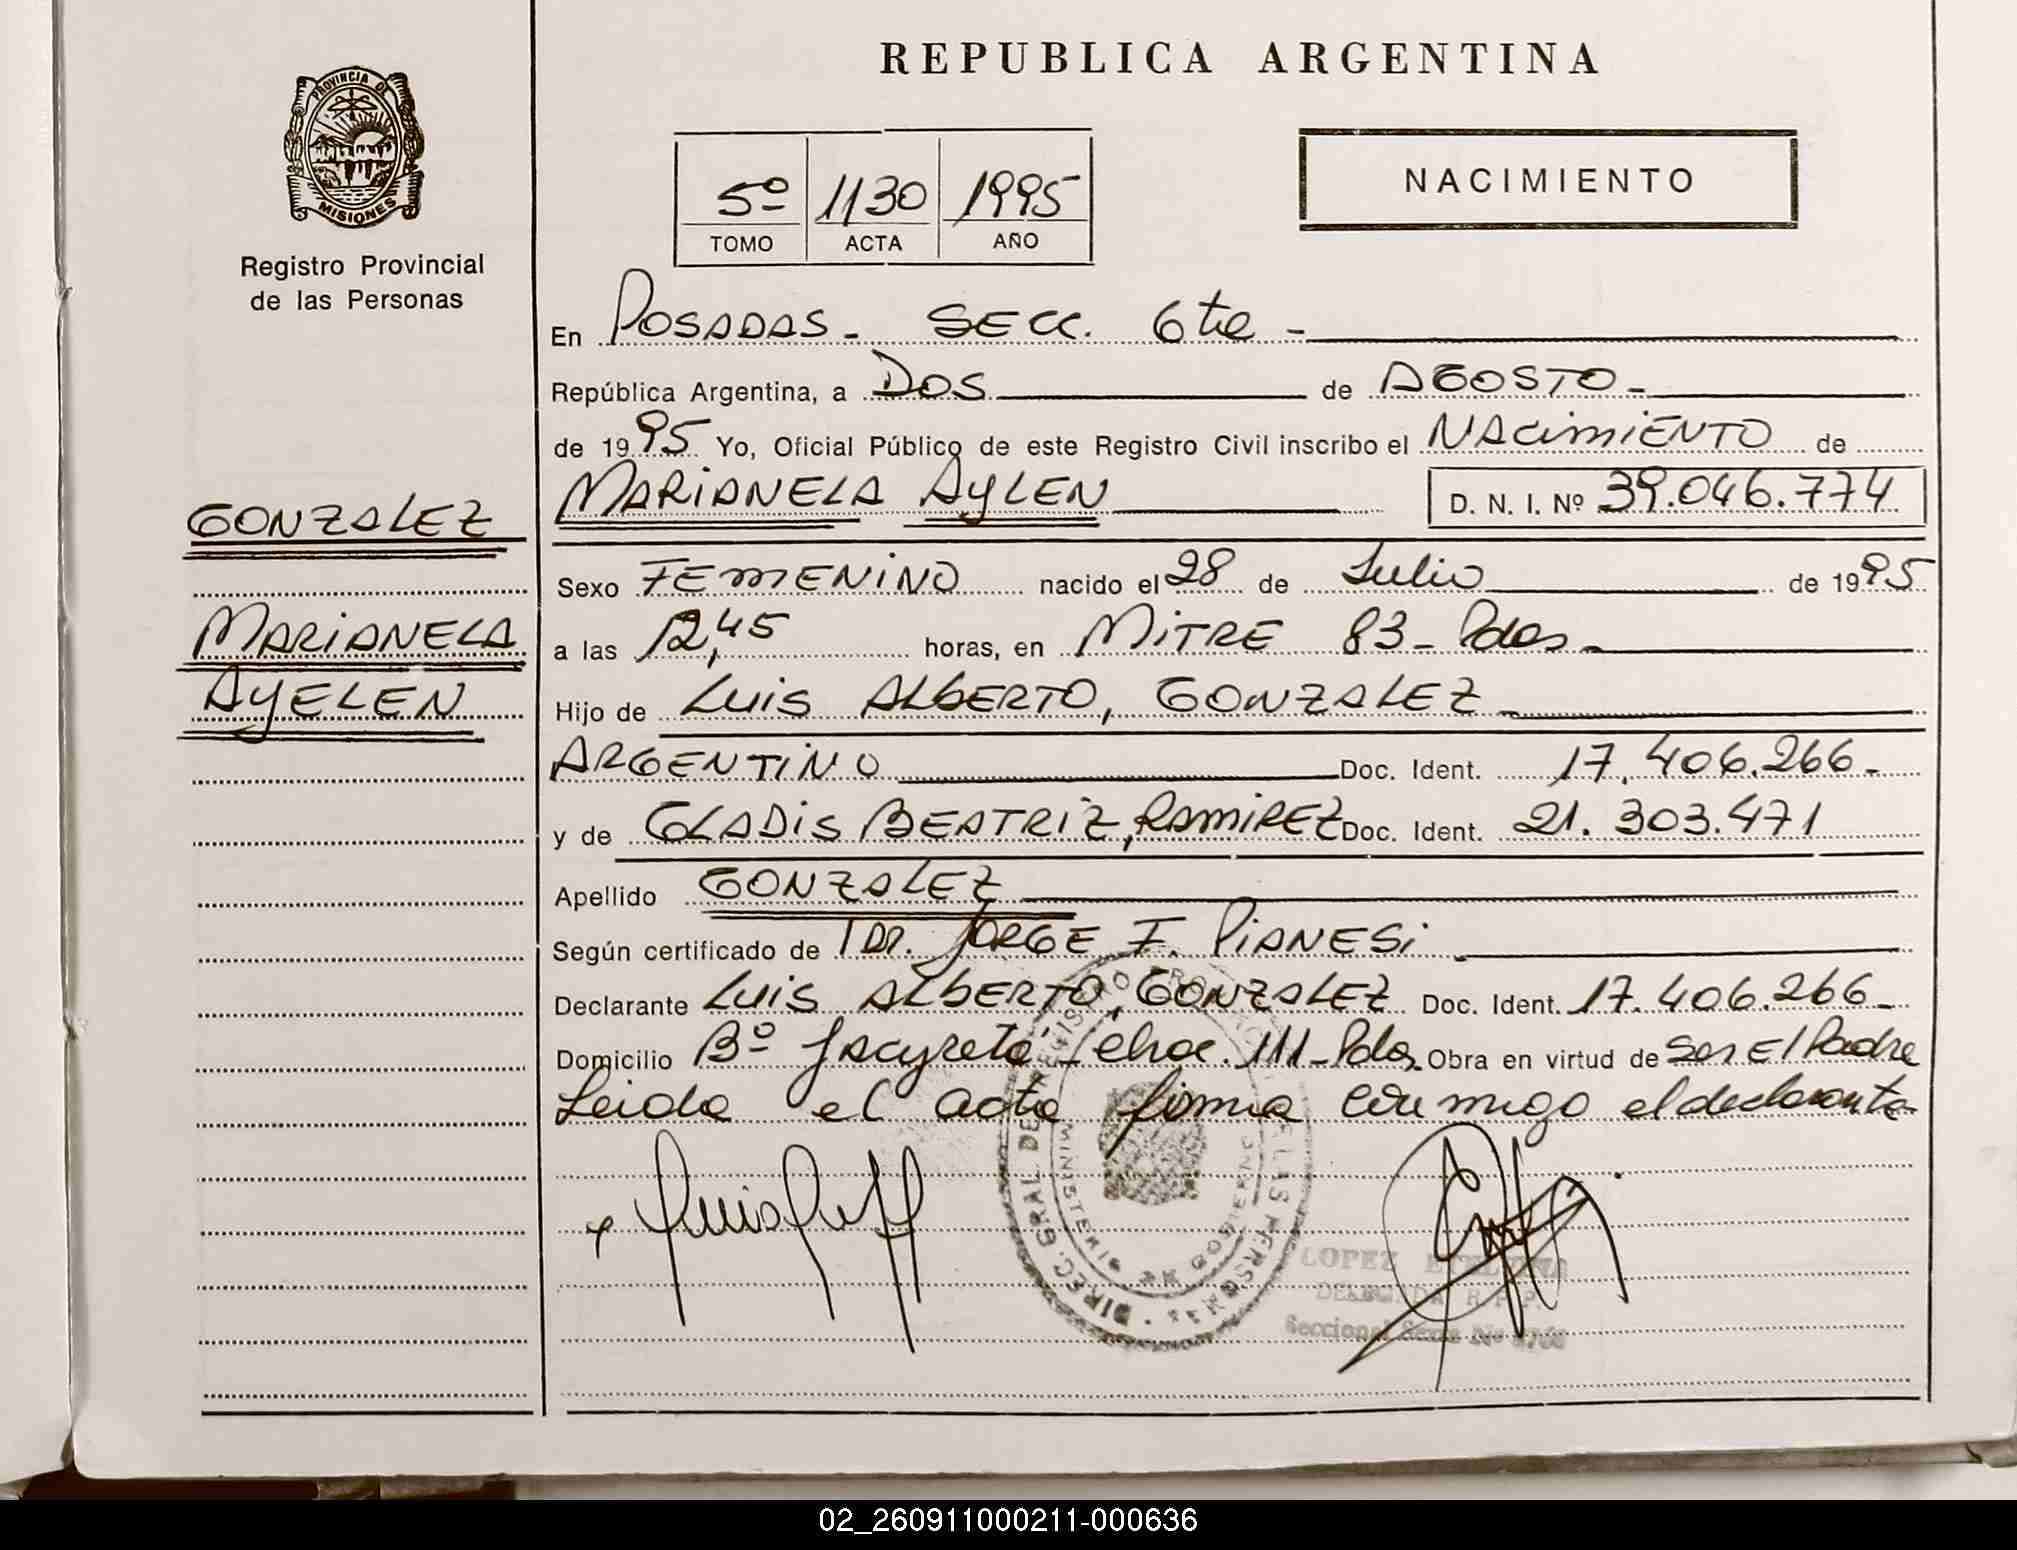 REPUBLICA ARGENTINA
PROVINCIA DE
MISIONES
Registro Provincial
de las Personas
5º 1130 1995
TOMO ACTA AÑO
NACIMIENTO
En POSADAS - SECC. 6ta -
República Argentina, a DOS de AGOSTO -
de 1995 Yo, Oficial Público de este Registro Civil inscribo el NACIMIENTO de
MARIANELA AYLEN D. N. I. Nº 39.046.774
GONZALEZ
MARIANELA
AYELEN
Sexo FEMENINO nacido el 28 de Julio de 1995
a las 12,45 horas, en MITRE 83 - Pdas -
Hijo de LUIS ALBERTO, GONZALEZ -
ARGENTINO Doc. Ident. 17.406.266 -
y de GLADIS BEATRIZ, RAMIREZ Doc. Ident. 21.303.471
Apellido GONZALEZ
Según certificado de DR. JORGE F. PIANESI
Declarante LUIS ALBERTO, GONZALEZ Doc. Ident. 17.406.266 -
Domicilio Bº Yacyretá Chac. 111 - Pdas. Obra en virtud de ser El Padre
Leida el acta firma conmigo el declarante
DIREC. GRAL DE REGISTRO DE LAS PERSONAS
LOPEZ
DELEGADA R.P.P.
Seccional Sexta Nº
02_260911000211-000636